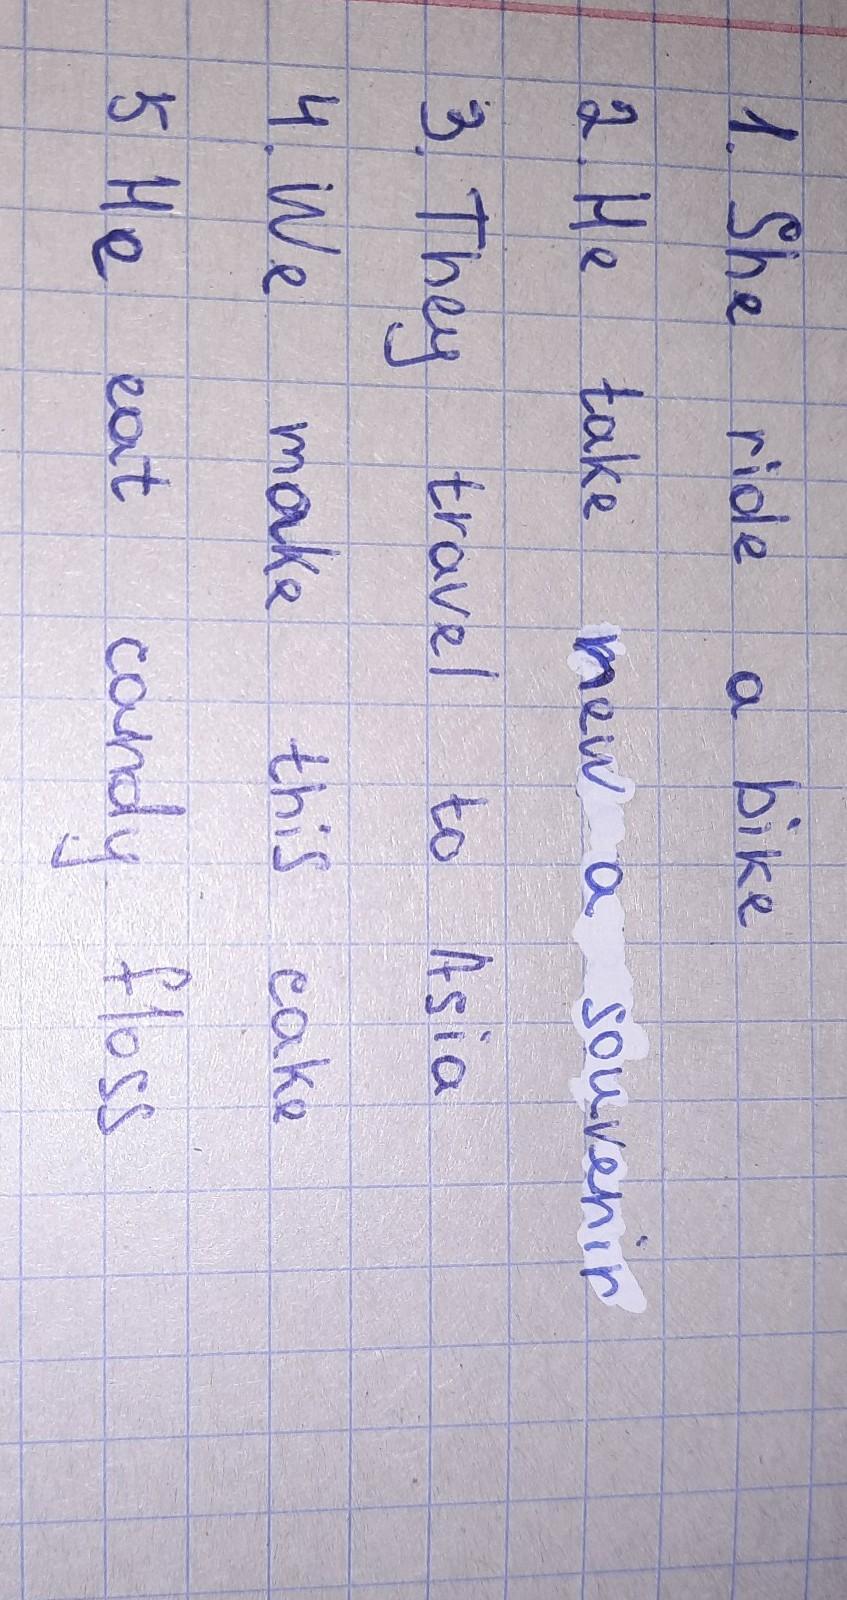 1. She ride a bike
2. He take new a souvenir
3. They travel to Asia
4. We make this cake
5 He eat candy floss